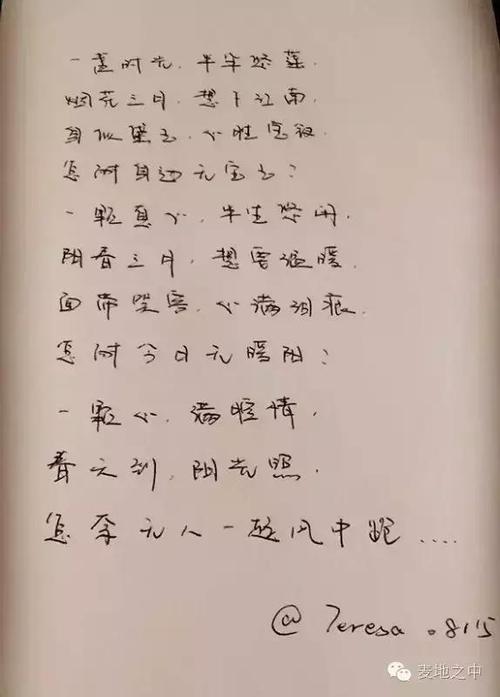 一盏时光.半
烟花三月.想下江南.
身似黛玉.心性宝钗.
怎耐身边无宝玉?
一颗真心.半生悠闲.
阳春三月.想要温暖.
面带笑容.心满泪痕.
怎耐今日无暖阳?
一颗心.满腔情.
春天到.阳光照.
怎奈无人一起风中跑....
@Teresa.0815
麦地之中